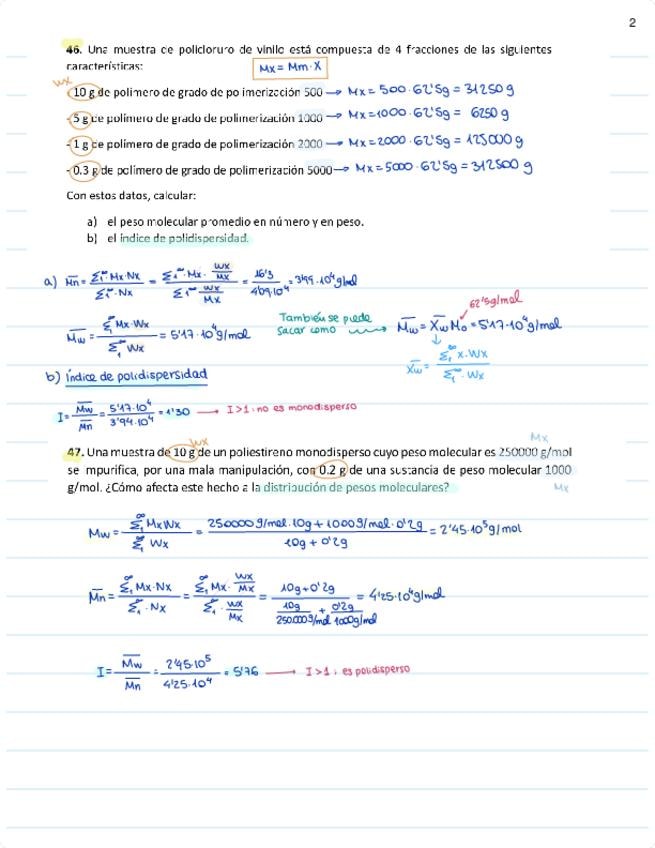 2
46. Una muestra de policloruro de vinilo está compuesta de 4 fracciones de las siguientes
características: Mx = Mm · X
Wx
- 10 g de polímero de grado de polimerización 500 → Mx = 500 · 62'5g = 31250 g
- 5 g de polímero de grado de polimerización 1000 → Mx = 1000 · 62'5g = 6250 g
- 1 g de polímero de grado de polimerización 2000 → Mx = 2000 · 62'5g = 125000 g
- 0.3 g de polímero de grado de polimerización 5000 → Mx = 5000 · 62'5g = 312500 g
Con estos datos, calcular:
a) el peso molecular promedio en número y en peso.
b) el índice de polidispersidad.
a) Mn = Σ₁^∞ · Mx · Nx / Σ₁^∞ · Nx = Σ₁^∞ · Mx · Wx/Mx / Σ₁^∞ Wx/Mx = 16'3 / 4'09·10⁻⁴ = 3'99 · 10⁴ g/mol
62'5g/mol
Mw = Σ₁^∞ Mx · Wx / Σ₁^∞ Wx = 5'17 · 10⁴ g/mol También se puede sacar como → Mw = Xw M₀ = 5'17 · 10⁴ g/mol
Xw = Σ₁^∞ x · Wx / Σ₁^∞ · Wx
b) Índice de polidispersidad
I = Mw / Mn = 5'17 · 10⁴ / 3'94 · 10⁴ = 1'30 → I > 1 · no es monodisperso
Wx Mx
47. Una muestra de 10 g de un poliestireno monodisperso cuyo peso molecular es 250000 g/mol
se impurifica, por una mala manipulación, con 0.2 g de una sustancia de peso molecular 1000
g/mol. ¿Cómo afecta este hecho a la distribución de pesos moleculares? Mx
Mw = Σ₁^∞ Mx Wx / Σ₁^∞ Wx = 250000 g/mol · 10g + 1000 g/mol · 0'2g / 10g + 0'2g = 2'45 · 10⁵ g/mol
Mn = Σ₁^∞ Mx · Nx / Σ₁^∞ · Nx = Σ₁^∞ Mx · Wx/Mx / Σ₁^∞ · Wx/Mx = 10g + 0'2g / 10g/250.000 g/mol + 0'2g/1000g/mol = 4'25 · 10⁴ g/mol
I = Mw / Mn = 2'45 · 10⁵ / 4'25 · 10⁴ = 5'76 → I > 1 · es polidisperso